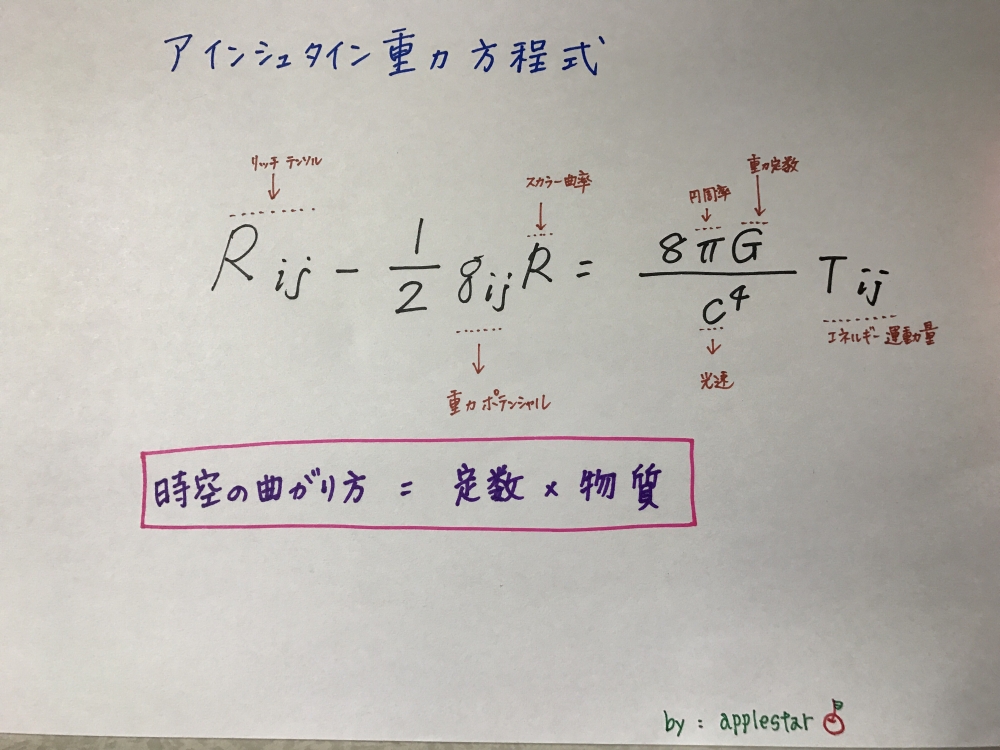 アインシュタイン重力方程式
リッチ テンソル
スカラー曲率
円周率
重力定数
R ij − 1/2 g ij R = 8πG/c⁴ T ij
エネルギー運動量
光速
重力ポテンシャル
時空の曲がり方 = 定数 × 物質
by : applestar